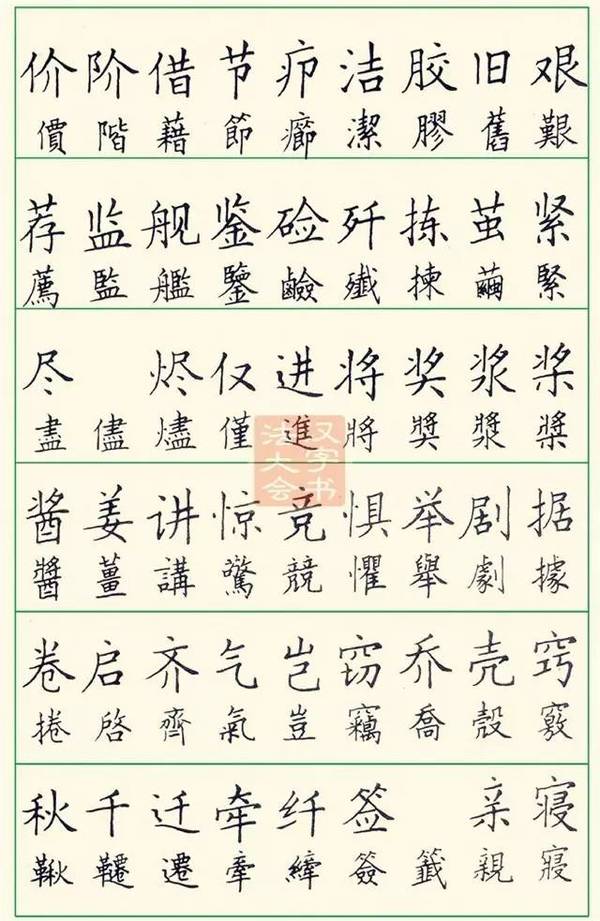 价阶借节疖洁胶旧艰
價階藉節癤潔膠舊艱
荐监舰鉴硷歼拣茧紧
薦監艦鑒鹼殲揀繭緊
尽 烬仅进将奖浆桨
盡儘燼僅進將獎漿槳
酱姜讲惊竞惧举剧据
醬薑講驚競懼舉劇據
卷启齐气岂窃乔壳窍
捲啓齊氣豈竊喬殼竅
秋千迁牵纤签 亲寝
鞦韆遷牽縴簽籤親寢
汉字书
法大会